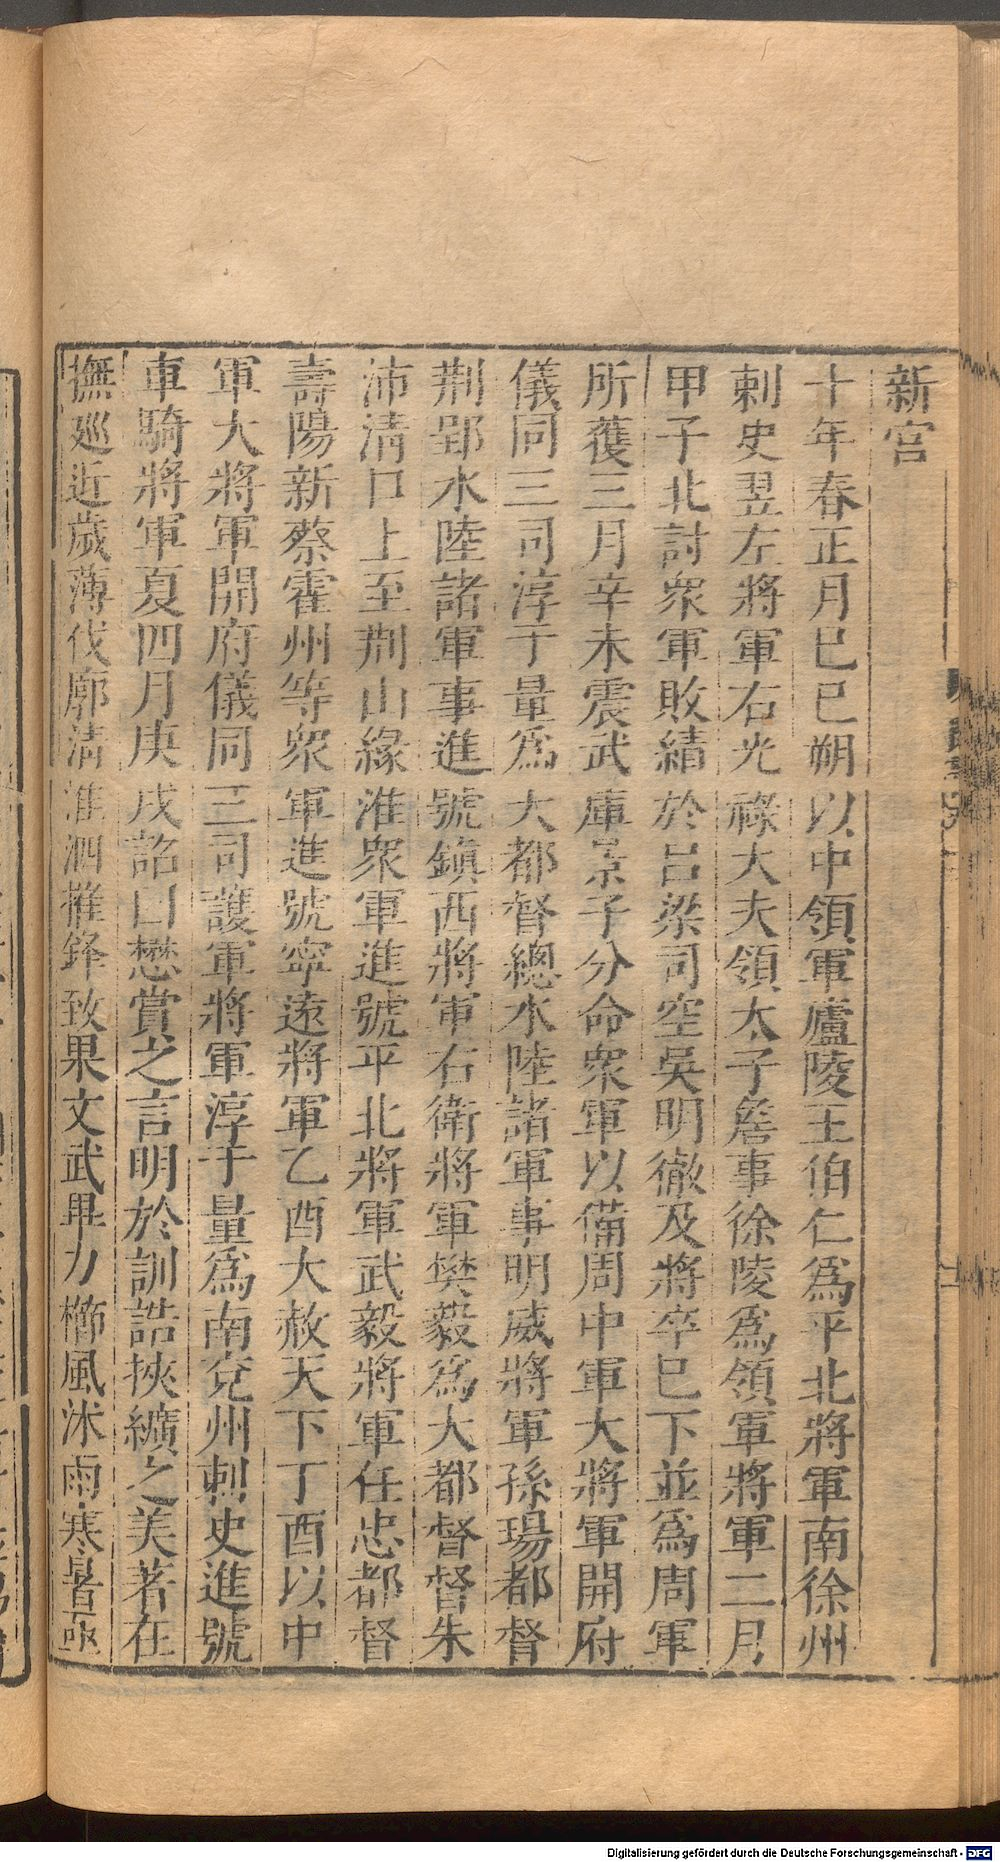 新宮
十年春正月己巳朔以中領軍廬陵王伯仁爲平北將軍南徐州
刺史翌左將軍右光祿大夫領太子詹事徐陵爲領軍將軍二月
甲子北討衆軍敗績於呂梁司空吳明徹及將卒巳下並爲周軍
所獲三月辛未震武庫景子分命衆軍以備周中軍大將軍開府
儀同三司淳于量爲大都督總水陸諸軍事明威將軍孫瑒都督
荆郢水陸諸軍事進號鎮西將軍右衛將軍樊毅爲大都督督朱
沛清口上至荆山緣淮衆軍進號平北將軍武毅將軍任忠都督
壽陽新蔡霍州等衆軍進號寧遠將軍乙酉大赦天下丁酉以中
軍大將軍開府儀同三司護軍將軍淳于量爲南兗州刺史進號
車騎將軍夏四月庚戌詔曰懋賞之言明於訓誥挾纊之美著在
撫廵近歲薄伐廓清淮泗摧鋒致果文武畢力櫛風沐雨寒暑亟
Digitalisierung gefördert durch die Deutsche Forschungsgemeinschaft - DFG